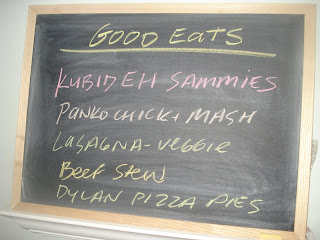 GOOD EATS
KUBIDEH SAMMIES
PANKO CHICK + MASH
LASAGNA-VEGGIE
Beef Stew
DYLAN PIZZA PIES